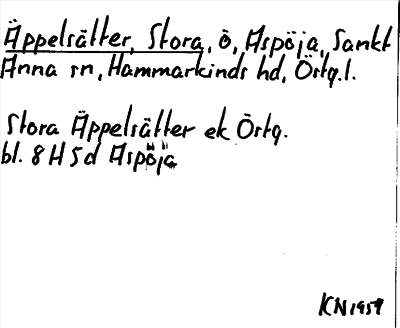 Äppelsätter, Stora, ö, Aspöja, Sankt
Anna sn, Hammarkinds hd, Östg.l.
Stora Äppelsätter ek Östg.
bl. 8H5d Aspöja
KN 1959